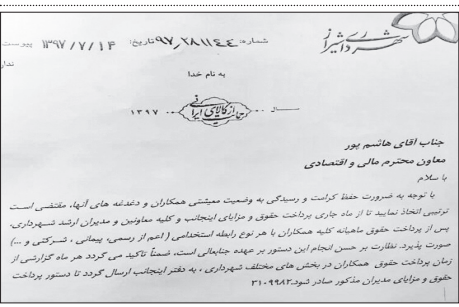 شهرداری شیراز
شماره: ۹۷٫۲۸۱۱۴۴ تاریخ: ۱۳۹۷/۷/۱۴ پیوست
ندار
به نام خدا
ســال حمایت از کالای ایرانی ۱۳۹۷
جناب آقای هاشم پور
معاون محترم مالی و اقتصادی
با سلام
با توجه به ضرورت حفظ کرامت و رسیدگی به وضعیت معیشتی همکاران و دغدغه های آنها، مقتضی است
ترتیبی اتخاذ نمایید تا از ماه جاری پرداخت حقوق و مزایای اینجانب و کلیه معاونین و مدیران ارشد شهرداری،
پس از پرداخت حقوق ماهیانه کلیه همکاران با هر نوع رابطه استخدامی ( اعم از رسمی، پیمانی ، شرکتی و ...)
صورت پذیرد. نظارت بر حسن انجام این دستور بر عهده جنابعالی است، ضمناً تاکید می گردد هر ماه گزارشی از
زمان پرداخت حقوق همکاران در بخش های مختلف شهرداری ، به دفتر اینجانب ارسال گردد تا دستور پرداخت
حقوق و مزایای مدیران مذکور صادر شود.۳۱۰۹۹۸۲